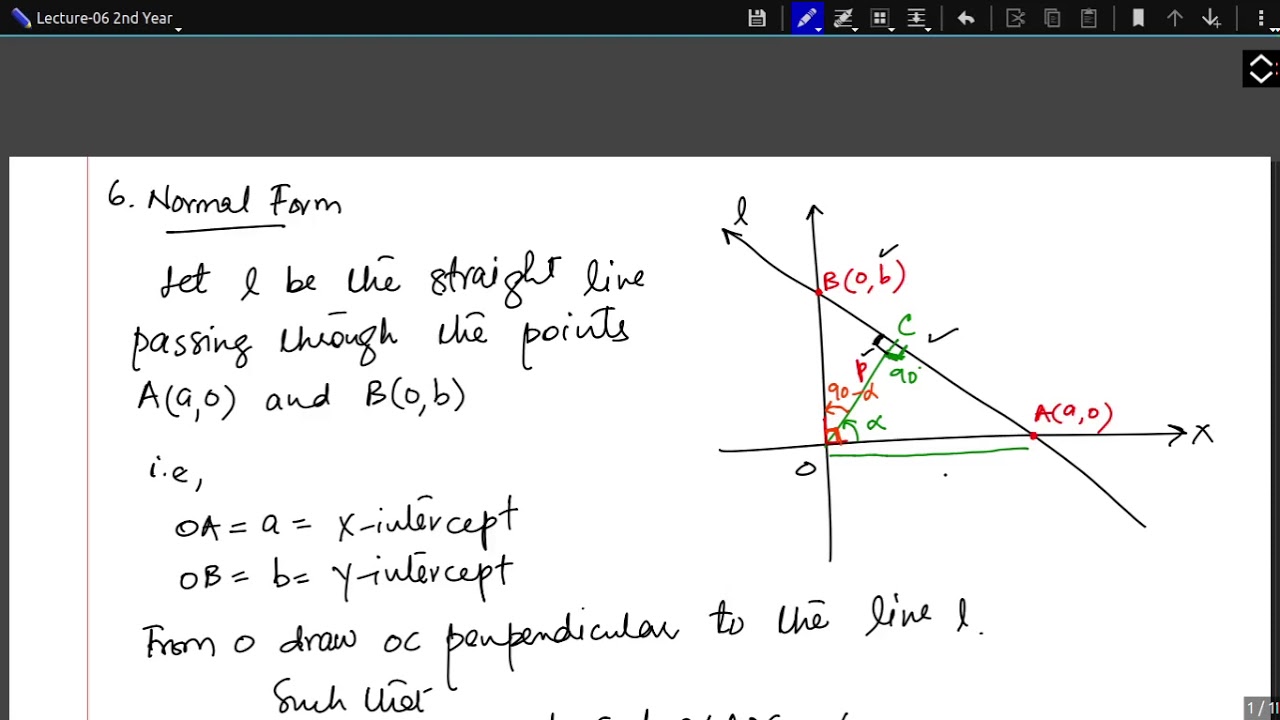 Lecture-06 2nd Year
6. Normal Form
Let l be the straight line
passing through the points
A(a,0) and B(0,b)
i.e,
OA = a = X-intercept
OB = b = Y-intercept
From O draw OC perpendicular to the line l.
Such that
l
B(0,b)
C
P
90
90-α
α
A(a,0)
X
O
1 / 1